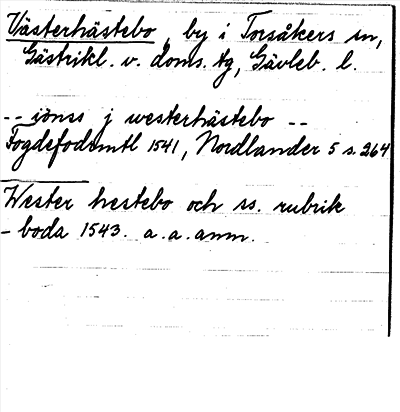 Västerhästebo, by i Torsåkers sn,
Gästrikl. v. doms. tg, Gävleb. l.
-- jönss j westerhästebo --
Fogdefodrmtl 1541, Nordlander 5 s. 264
Wester hestebo och ss. rubrik
- boda 1543. a. a. anm.